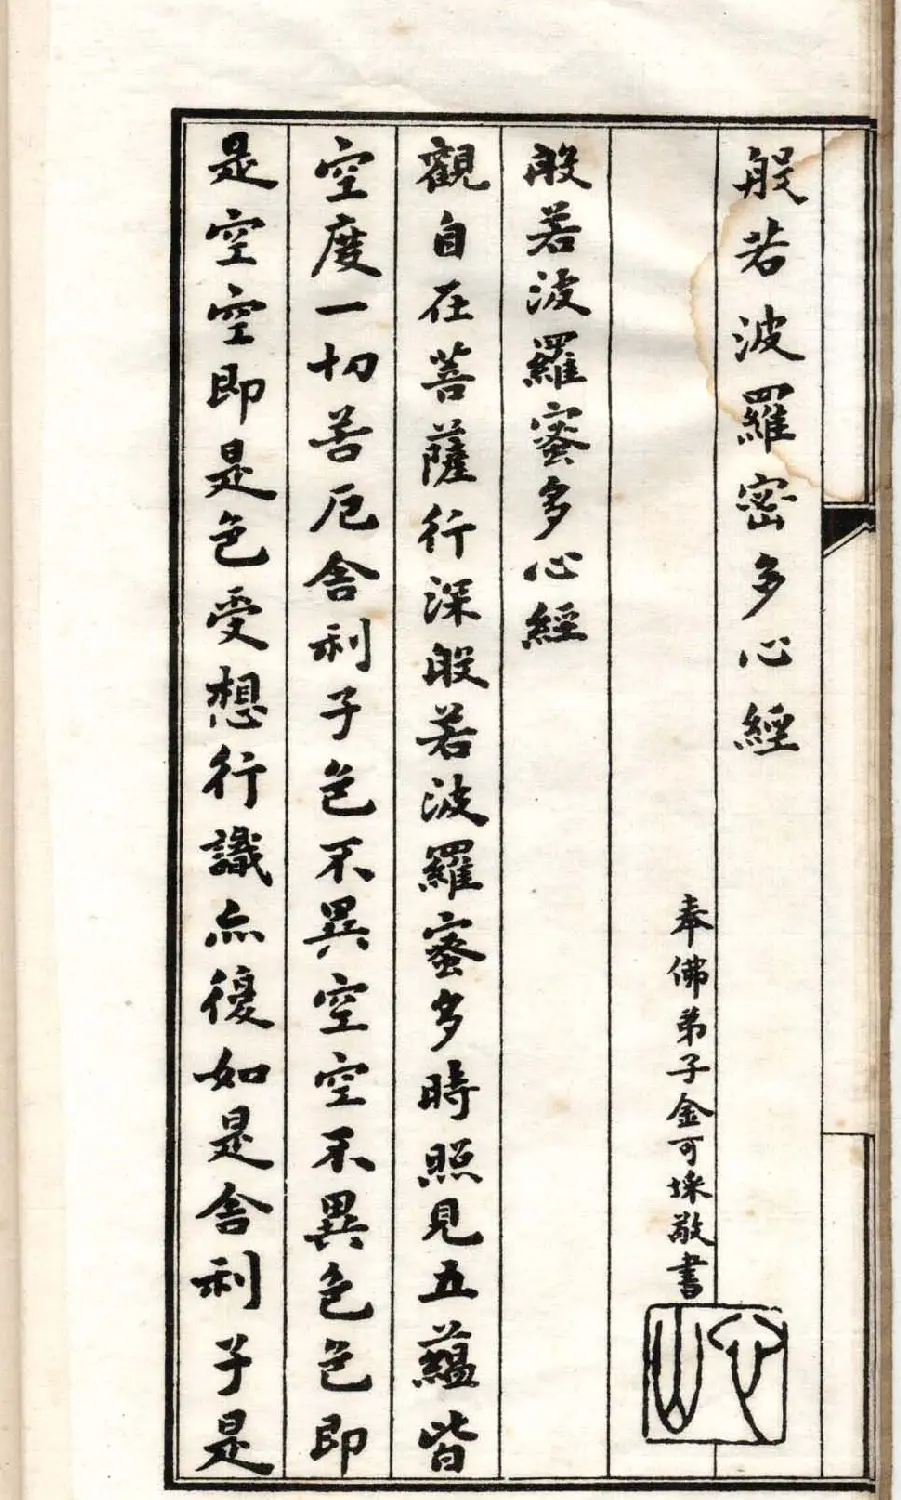 般若波羅密多心經
奉佛弟子金可埰敬書
般若波羅蜜多心經
觀自在菩薩行深般若波羅蜜多時照見五蘊皆
空度一切苦厄舍利子色不異空空不異色色即
是空空即是色受想行識亦復如是舍利子是